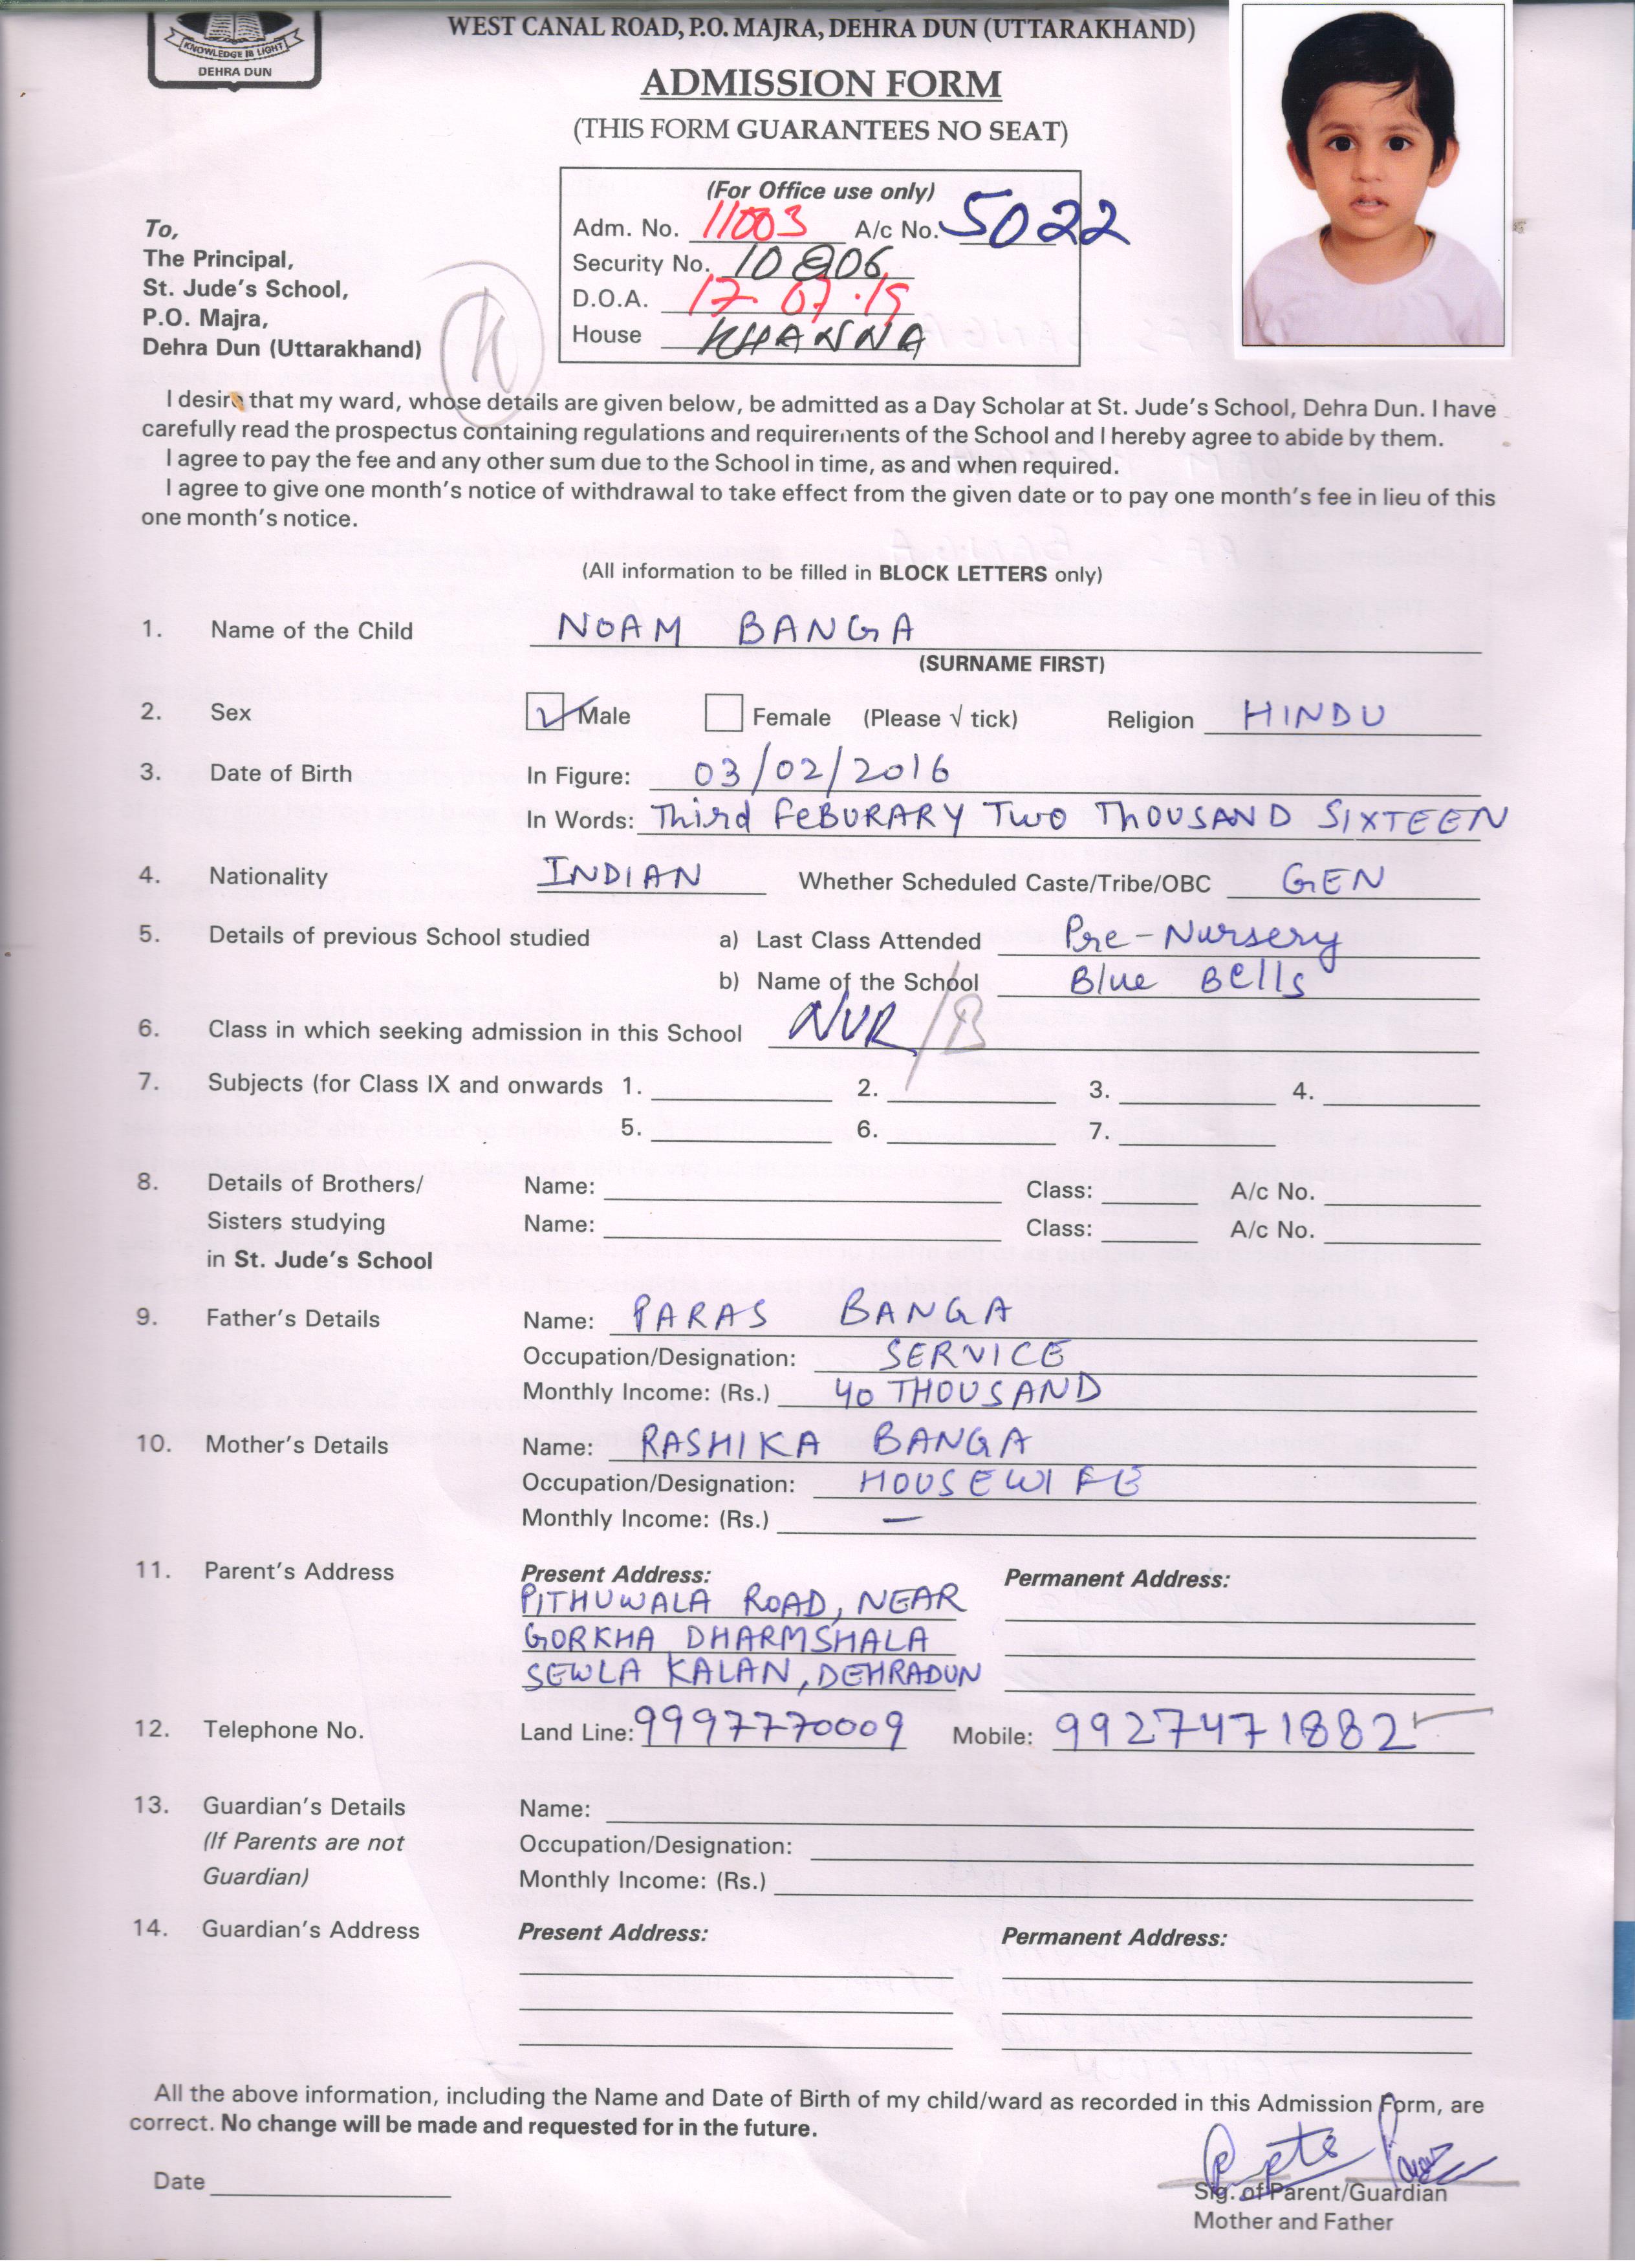 KNOWLEDGE IS LIGHT
DEHRA DUN
WEST CANAL ROAD, P.O. MAJRA, DEHRA DUN (UTTARAKHAND)
ADMISSION FORM
(THIS FORM GUARANTEES NO SEAT)
(For Office use only)
Adm. No. 11003 A/c No. 5022
Security No.
D.O.A. 17.07.19
House KHANNA
To,
The Principal,
St. Jude's School,
P.O. Majra,
Dehra Dun (Uttarakhand)
K
I desire that my ward, whose details are given below, be admitted as a Day Scholar at St. Jude's School, Dehra Dun. I have
carefully read the prospectus containing regulations and requirements of the School and I hereby agree to abide by them.
I agree to pay the fee and any other sum due to the School in time, as and when required.
I agree to give one month's notice of withdrawal to take effect from the given date or to pay one month's fee in lieu of this
one month's notice.
(All information to be filled in BLOCK LETTERS only)
1. Name of the Child NOAM BANGA
(SURNAME FIRST)
2. Sex Male Female (Please √ tick) Religion HINDU
3. Date of Birth In Figure: 03/02/2016
In Words: Third FeBURARY Two ThOUSAND SIXTEEN
4. Nationality INDIAN Whether Scheduled Caste/Tribe/OBC GEN
5. Details of previous School studied a) Last Class Attended Pre-Nursery
b) Name of the School Blue Bells
6. Class in which seeking admission in this School NUR/B
7. Subjects (for Class IX and onwards 1. 2. 3. 4.
5. 6. 7.
8. Details of Brothers/ Name: Class: A/c No.
Sisters studying Name: Class: A/c No.
in St. Jude's School
9. Father's Details Name: PARAS BANGA
Occupation/Designation: SERVICE
Monthly Income: (Rs.) 40 THOUSAND
10. Mother's Details Name: RASHIKA BANGA
Occupation/Designation: HOUSEWIFE
Monthly Income: (Rs.) —
11. Parent's Address Present Address: Permanent Address:
PITHUWALA ROAD, NEAR
GORKHA DHARMSHALA
SEWLA KALAN, DEHRADUN
12. Telephone No. Land Line: 9997770009 Mobile: 9927471882
13. Guardian's Details Name:
(If Parents are not Occupation/Designation:
Guardian) Monthly Income: (Rs.)
14. Guardian's Address Present Address: Permanent Address:
All the above information, including the Name and Date of Birth of my child/ward as recorded in this Admission Form, are
correct. No change will be made and requested for in the future.
Date
Sig. of Parent/Guardian
Mother and Father